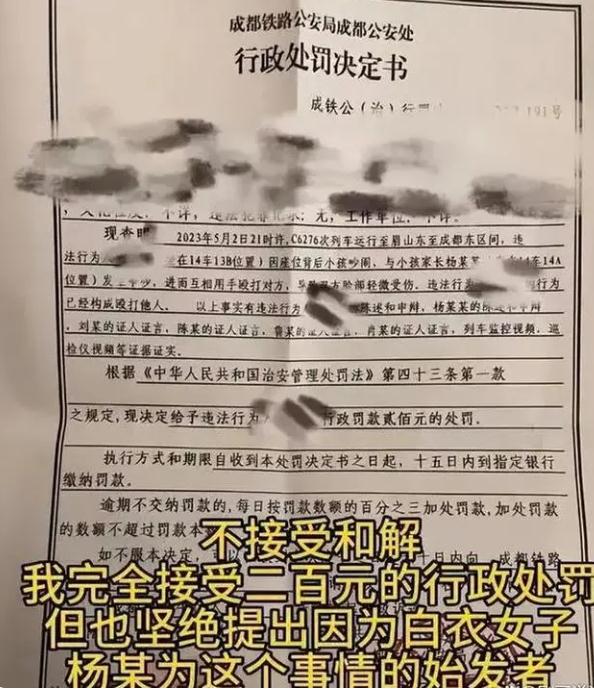 成都铁路公安局成都公安处
行政处罚决定书
成铁公(治)行罚
191号
不详,违法犯罪记录:无,工作单位:不详。
现查明 2023年5月2日21时许,C6276次列车运行至眉山东至成都东区间,违
法行为 在14车13B位置)因座位背后小孩吵闹、与小孩家长杨某某 14车14A
位置)发生争吵,进而互相用手殴打对方,导致双方脸部轻微受伤。违法行为 的行为
已经构成殴打他人。 以上事实有违法行为 陈述和申辩,杨某某的陈述和申辩
、刘某的证人证言,陈某的证人证言,鲁某的证人证言,肖某的证人证言,列车监控视频,巡
检仪视频等证据证实。
根据《中华人民共和国治安管理处罚法》第四十三条第一款
之规定,现决定给予违法行为 行政罚款贰佰元的处罚。
执行方式和期限自收到本处罚决定书之日起,十五日内到指定银行
缴纳罚款。
逾期不交纳罚款的,每日按罚款数额的百分之三加处罚款,加处罚款
的数额不超过罚款本
如不服本决定, 以 十日内向 成都铁路
不接受和解
我完全接受二百元的行政处罚
但也坚绝提出因为白衣女子
杨某为这个事情的始发者